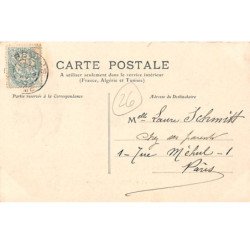 CARTE POSTALE
A utiliser seulement dans le service intérieur
(France, Algérie et Tunisie)
Partie réservée à la Correspondance
Adresse du Destinataire
26
Mlle Laure Schmitt
Chez ses parents
1 - Rue Méhul - 1
Paris